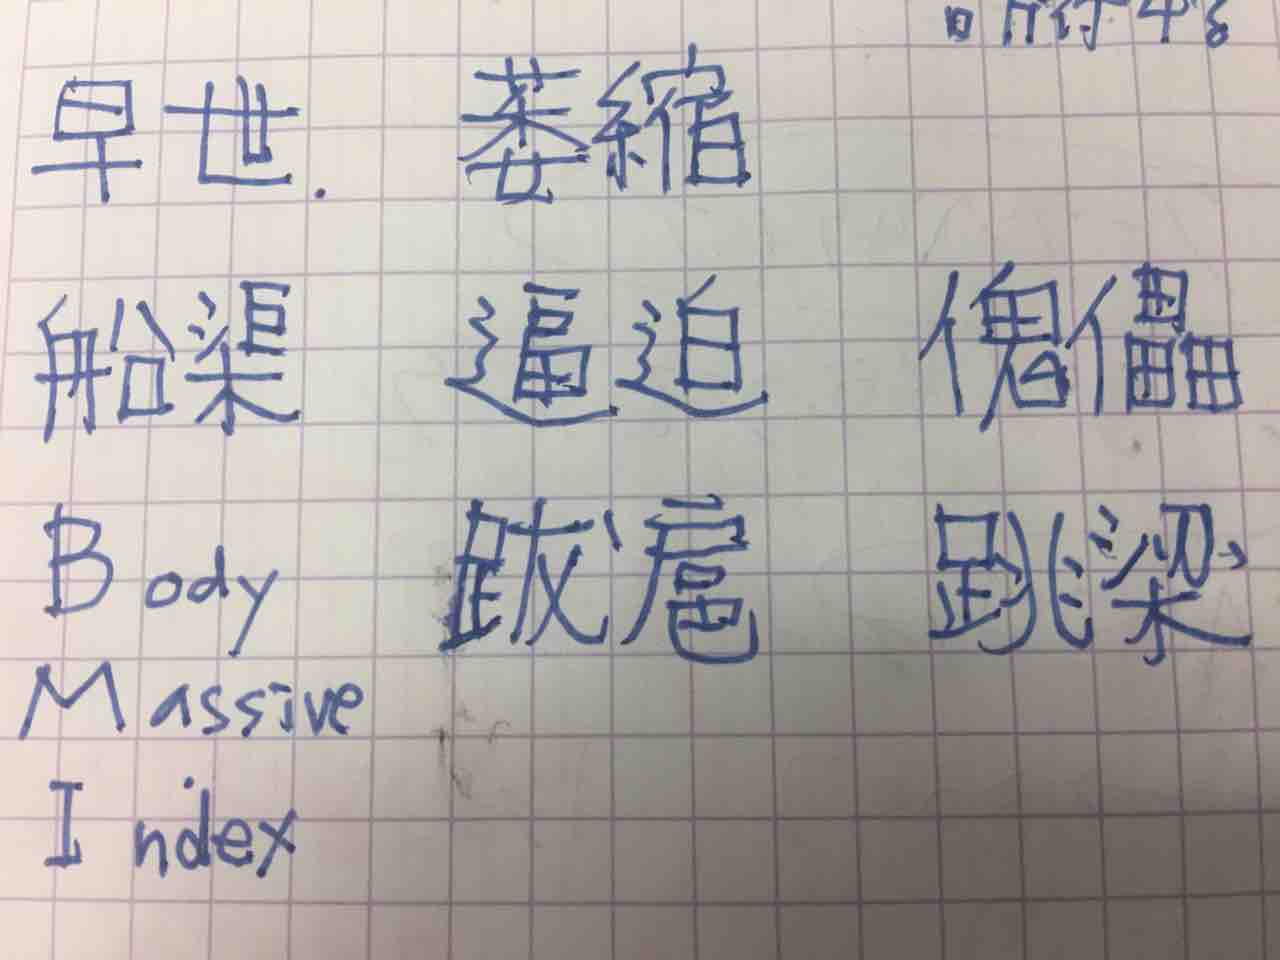 早世. 萎縮
船渠 逼迫 傀儡
Body 跋扈 跳梁
Massive
Index